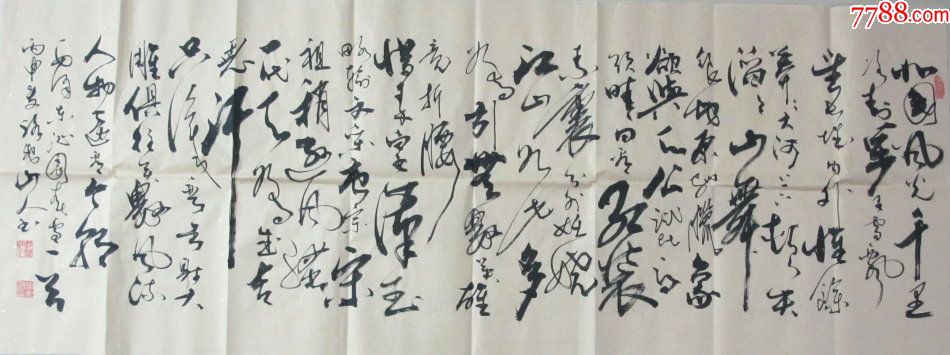 7788.com
北國风光千里
冰封萬里雪飘
望长城内外惟餘
莽々大河上下頓失
滔々山舞
银蛇原驰腊象
欲與天公試比高
须晴日看红装
素裹分外妖娆
江山如此多
娇引無數英雄
竞折腰
惜秦皇漢武
略输文采唐宗宋
祖稍逊风骚
一代天骄成吉
思汗
只识弯弓射大
雕俱往矣數风流
人物还看今朝
毛泽东沁园春雪一首
丙申 山人书